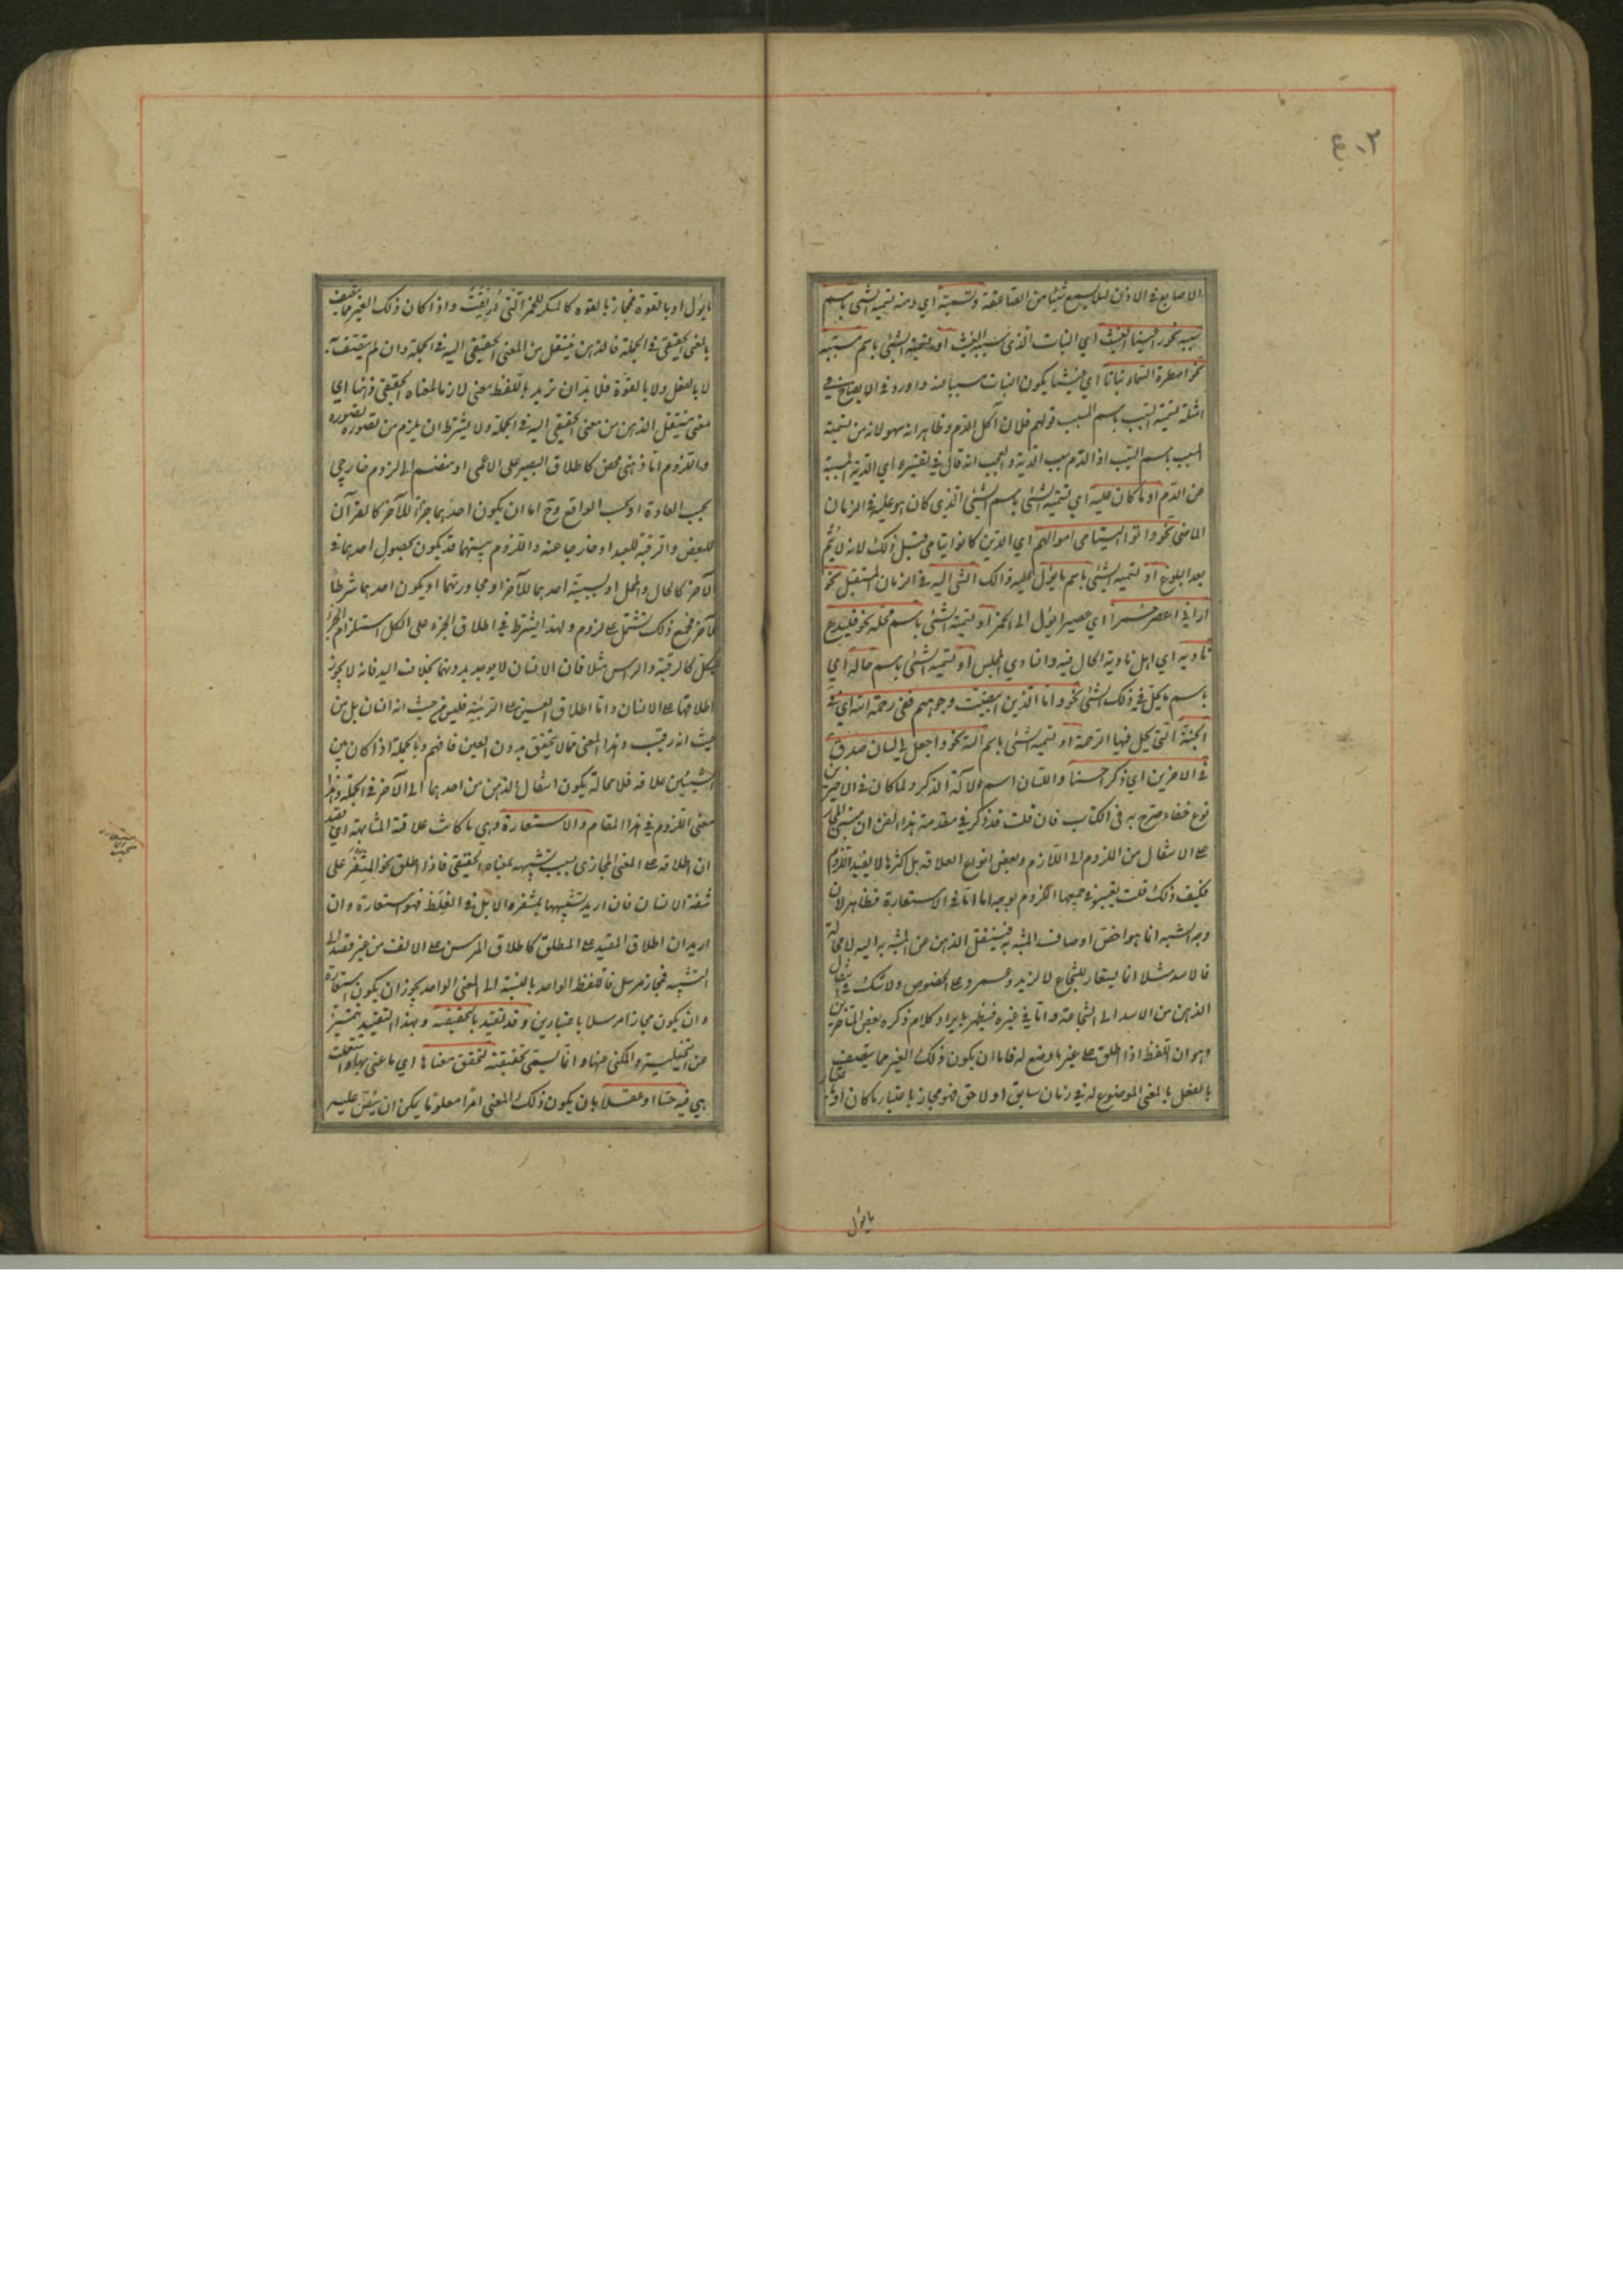 ٤٠٢
الاصابع في الاذن لئلا يسمع شيئا من الصاعقة وتسمية اي ومنه تسمية الشئ باسم
سببه نحو رعينا الغيث اي النبات الذي سببه الغيث او تسمية الشئ باسم مسببه
نحو امطرة السماء نباتا اي غيثا يكون النبات سببا عنه واورد في الايضاح في
امثلة تسمية السبب باسم المسبب قولهم فلان اكل الدم وظاهر انه سهو لانه من تسمية
المسبب باسم السبب اذ الدم سبب الدية والعجب انه قال في تفسيره اي الدية المسببة
عن الدم او ما كان عليه اي تسمية الشئ باسم الشئ الذي كان هو عليه في الزمان
الماضي نحو واتوا اليتامى اموالهم اي الذين كانوا يتامى قبل ذلك لانه لا يتم
بعد البلوغ او تسمية الشئ باسم ما يؤل اليه ذلك الشئ اليه في الزمان المستقبل نحو
اراني اعصر خمرا اي عصيرا يؤل الى الخمر او تسمية الشئ باسم محله نحو فليدع
ناديه اي اهل ناديه الحال فيه والنادي المجلس او تسمية الشئ باسم حاله اي
باسم ما يحل في ذلك الشئ نحو واما الذين ابيضت وجوههم ففي رحمة الله اي في
الجنة التي يحل فيها الرحمة او تسمية الشئ باسم الته نحو واجعل لي لسان صدق
في الاخرين اي ذكرا حسنا واللسان اسم لآلة الذكر ولما كان في الاخيرين
نوع خفاء صرح به في الكتاب فان قلت قد ذكر في مقدمة هذا الفن ان مبنى المجاز
على الانتقال من الملزوم الى اللازم وبعض انواع العلاقة بل اكثرها لا يفيد اللزوم
فكيف ذلك قلت يعتبر في جميعها اللزوم بوجه اما اما في الاستعارة فظاهر لان
وجه الشبه انما هو اخص اوصاف المشبه به فينتقل الذهن من المشبه به اليه لا محالة
فالاسد مثلا انما يستعار للشجاع لا لزيد وعمرو على الخصوص ولا شك في انتقال
الذهن من الاسد الى الشجاعة واما في غيره فيظهر بايراد كلام ذكره بعض المتاخرين
وهو ان اللفظ اذا اطلق على غير ما وضع له فاما ان يكون ذلك الغير مما يتصف
بالفعل بالمعنى الموضوع له في زمان سابق او لاحق فهو مجاز باعتبار ما كان او باعتبار
ما يؤل
ما يؤل او بالقوة فمجاز بالقوه كالمسكر للخمر التي اريقت واذا كان ذلك الغير مما يتصف
بالمعنى الحقيقي في الجملة فالذهن ينتقل من المعنى الحقيقي اليه في الجملة وان لم يتصف به
لا بالفعل ولا بالقوة فلا بد ان تريد باللفظ معنى لازما لمعناه الحقيقي ذهنا اي
معنى ينتقل الذهن من معنى الحقيقي اليه في الجملة ولا يشترط ان يلزم من تصوره تصوره
واللزوم اما ذهني محض كاطلاق البصير على الاعمى او منضم الى لزوم خارجي
بحسب العادة او بحسب الواقع وح اما ان يكون احدهما جزءا للآخر كالقرآن
للبعض والرقبة للعبد او خارجا عنه واللزوم بينهما قد يكون بحصول احدهما في
الآخر كالحال والمحل او بسببية احدهما للآخر او مجاورتهما او يكون احدهما شرطا
للآخر فجميع ذلك مشتمل على لزوم ولهذا يشترط في اطلاق الجزء على الكل استلزام الجزء
للكل كالرقبة والراس مثلا فان الانسان لا يوجد بدونهما بخلاف اليد فانه لا يجوز
اطلاقها على الانسان واما اطلاق العين على الربيئة فليس من حيث انه انسان بل من
حيث انه رقيب وهذا المعنى مما لا يتحقق بدون العين فافهم وبالجملة اذا كان بين
الشيئين علاقة فلا محالة يكون انتقال الذهن من احدهما الى الآخر في الجملة وهذا
معنى اللزوم في هذا المقام والاستعارة وهي ما كانت علاقة المشابهة اي قصد
ان اطلاقه على المعنى المجازي بسبب تشبيهه بمعناه الحقيقي فاذا اطلق نحو المشفر على
شفة الانسان فان اريد تشبيهها بمشفر الابل في الغلظ فهو استعارة وان
اريد ان اطلاق المقيد على المطلق كاطلاق المرسن على الانف من غير قصد الى
التشبيه فمجاز مرسل فاللفظ الواحد بالنسبة الى المعنى الواحد يجوز ان يكون استعارة
وان يكون مجازا مرسلا باعتبارين وقد تقيد بالتحقيقية وبهذا التقييد تتميز
عن التخييلية والمكني عنها وانما تسمى تحقيقية لتحقق معناها اي ما عني بها واستعملت
هي فيه حسا او عقلا بان يكون ذلك المعنى امرا معلوما يمكن ان ينص عليه